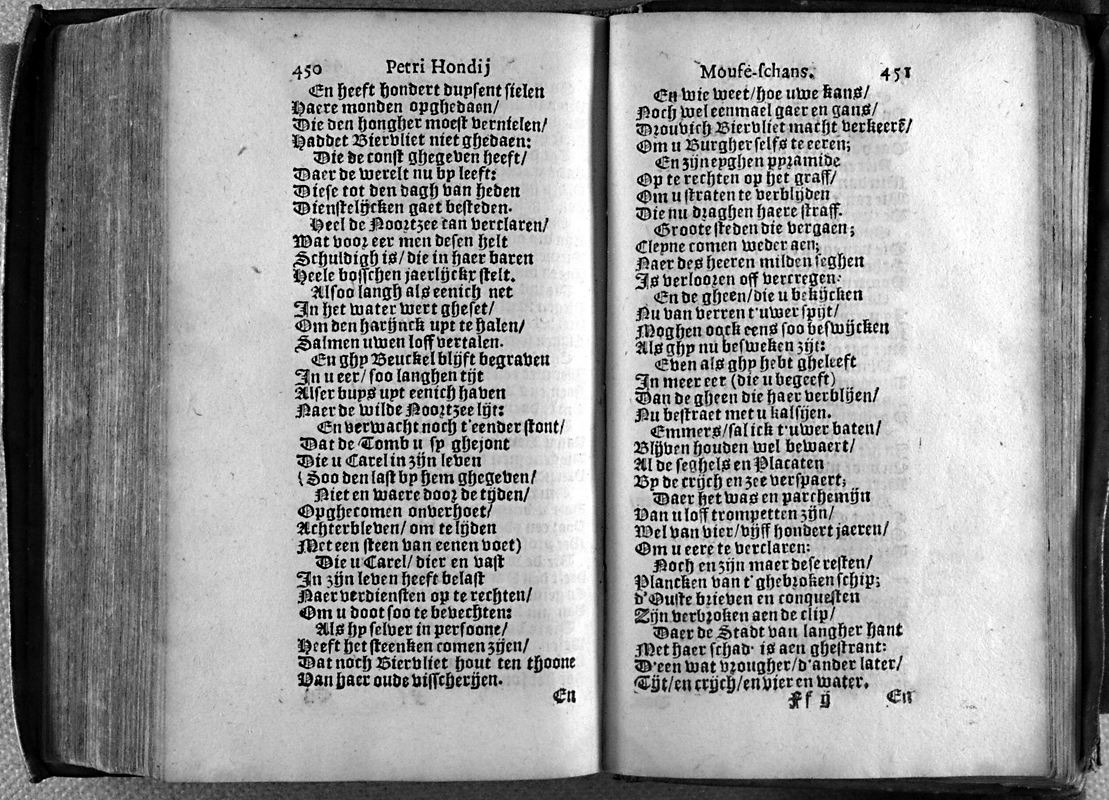 450 Petri Hondij
En heeft hondert duysent sielen
Haere monden opghedaen/
Die den hongher moest vernielen/
Haddet Biervliet niet ghedaen:
Die de const ghegeven heeft/
Daer de werelt nu by leeft:
Diese tot den dagh van heden
Dienstelijcken gaet besteden.
Heel de Noortzee can verclaren/
Wat voor eer men desen helt
Schuldigh is/ die in haer baren
Heele bosschen jaerlijckx stelt.
Alsoo langh als eenich net
In het water wert gheset/
Om den harijnck uyt te halen/
Salmen uwen loff vertalen.
En ghy Beuckel blijft begraven
In u eer/ soo langhen tijt
Alser buys uyt eenich haven
Naer de wilde Noortzee lijt:
En verwacht noch t'eender stont/
Dat de Tomb u sy ghejont
Die u Carel in zijn leven
(Soo den last by hem ghegeven/
Niet en waere door de tijden/
Opghecomen onverhoet/
Achterbleven/ om te lijden
Met een steen van eenen voet)
Die u Carel/ dier en vast
In zijn leven heeft belast
Naer verdiensten op te rechten/
Om u doot soo te bevechten:
Als hy selver in persoone/
Heeft het steenken comen zijen/
Dat noch Biervliet hout ten thoone
Van haer oude visscherijen.
En
Moufe-schans. 451
En wie weet/ hoe uwe kans/
Noch wel eenmael gaer en gans/
Drouvich Biervliet macht verkeerē/
Om u Burgher selfs te eeren;
En zijn eyghen pyramide
Op te rechten op het graff/
Om u straten te verblijden
Die nu draghen haere straff.
Groote steden die vergaen;
Cleyne comen weder aen;
Naer des heeren milden seghen
Is verlooren off vercregen.
En de gheen/ die u bekijcken
Nu van verren t'uwer spijt/
Moghen oock eens soo beswijcken
Als ghy nu besweken zijt:
Even als ghy hebt gheleeft
In meer eer (die u begeeft)
Dan de gheen die haer verblijen/
Nu bestraet met u kalsijen.
Emmers/ sal ick t'uwer baten/
Blijven houden wel bewaert/
Al de seghels en Placaten
By de crijch en zee verspaert;
Daer het was en parchemijn
Van u loff trompetten zijn/
Wel van vier/ vijff hondert jaeren/
Om u eere te verclaren:
Noch en zijn maer dese resten/
Plancken van t'ghebroken schip;
d'Ouste brieven en conquesten
Zijn verbroken aen de clip/
Daer de Stadt van langher hant
Met haer schad' is aen ghestrant:
D'een wat vrougher/ d'ander later/
Tijt/ en crijch/ en vier en water.
Ff ij En